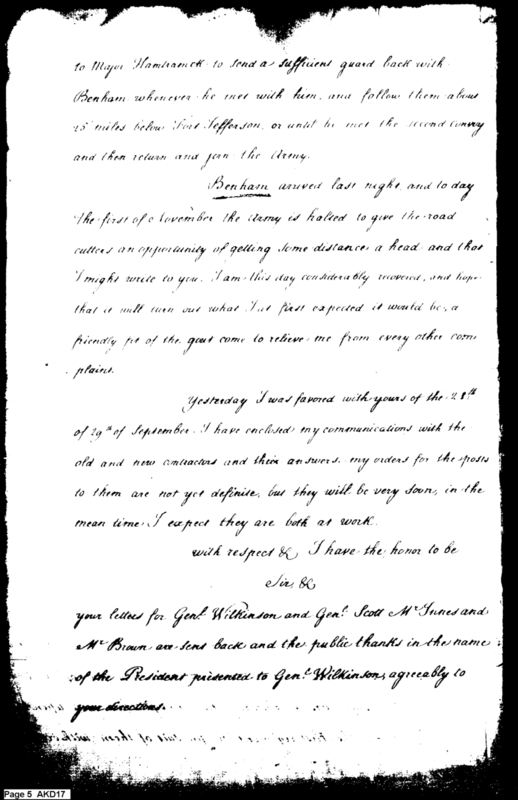 to Major Hamtramck to send a sufficient guard back with
Benham whenever he met with him, and follow them about
25 miles below Fort Jefferson, or until he met the second convoy
and then return and join the Army.
Benham arrived last night, and to day
the first of November the Army is halted to give the road
cutters an opportunity of getting some distance a head and that
I might write to you. I am this day considerably recovered, and hope
that it will turn out what I at first expected it would be, a
friendly fit of the gout come to relieve me from every other com
plaint.
Yesterday I was favored with yours of the 28th
of 29th of September. I have enclosed my communications with the
old and new contractors and their answers. my orders for the posts
to them are not yet definite, but they will be very soon, in the
mean time I expect they are both at work.
with respect &c I have the honor to be
Sir, &c
your letters for Genl. Wilkinson and Genl. Scott Mr Innes and
Mr Brown are sent back and the public thanks in the name
of the President presented to Genl. Wilkinson, agreeably to
your directions.
Page 5 AKD17